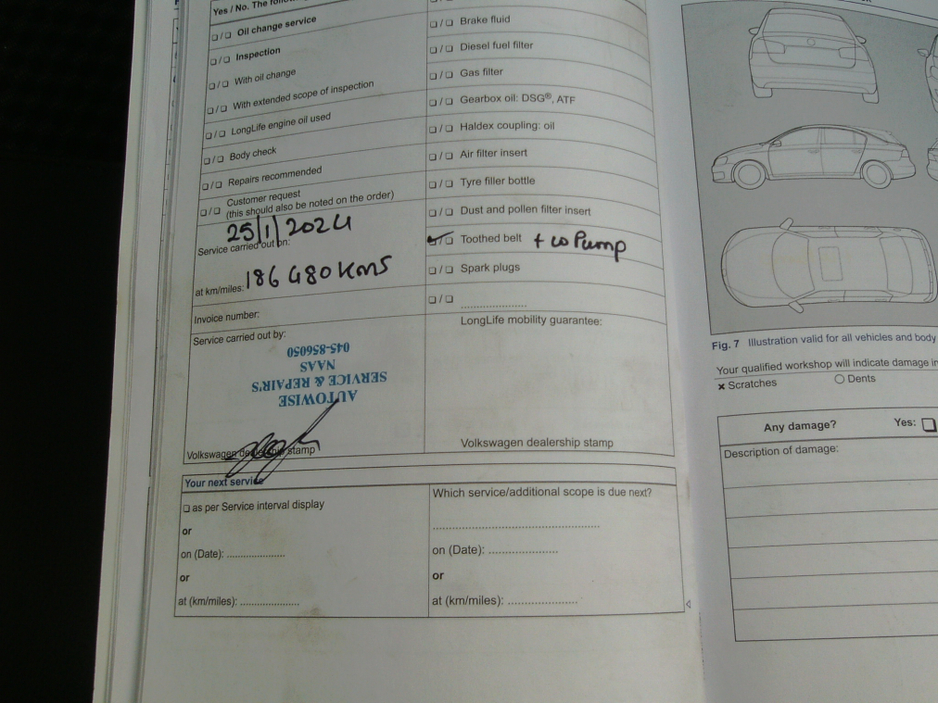 Yes / No. The follo
❏/❏ Oil change service
❏/❏ Inspection
❏/❏ With oil change
❏/❏ With extended scope of inspection
❏/❏ LongLife engine oil used
❏/❏ Body check
❏/❏ Repairs recommended
❏/❏ Customer request
(this should also be noted on the order)
25/1/2024
Service carried out on:
at km/miles: 186 480 kms
Invoice number:
Service carried out by:
AUTOWISE
SERVICE & REPAIR'S
NAAS
045-856050
Volkswagen dealership stamp
❏/❏ Brake fluid
❏/❏ Diesel fuel filter
❏/❏ Gas filter
❏/❏ Gearbox oil: DSG®, ATF
❏/❏ Haldex coupling: oil
❏/❏ Air filter insert
❏/❏ Tyre filler bottle
❏/❏ Dust and pollen filter insert
✓/❏ Toothed belt + w Pump
❏/❏ Spark plugs
❏/❏ ......................
LongLife mobility guarantee:
Volkswagen dealership stamp
Your next service
❏ as per Service interval display
or
on (Date): ................
or
at (km/miles): ................
Which service/additional scope is due next?
............................................
on (Date): ...................
or
at (km/miles): ...................
Fig. 7 Illustration valid for all vehicles and body
Your qualified workshop will indicate damage in
× Scratches ○ Dents
Any damage? Yes: ❏
Description of damage: